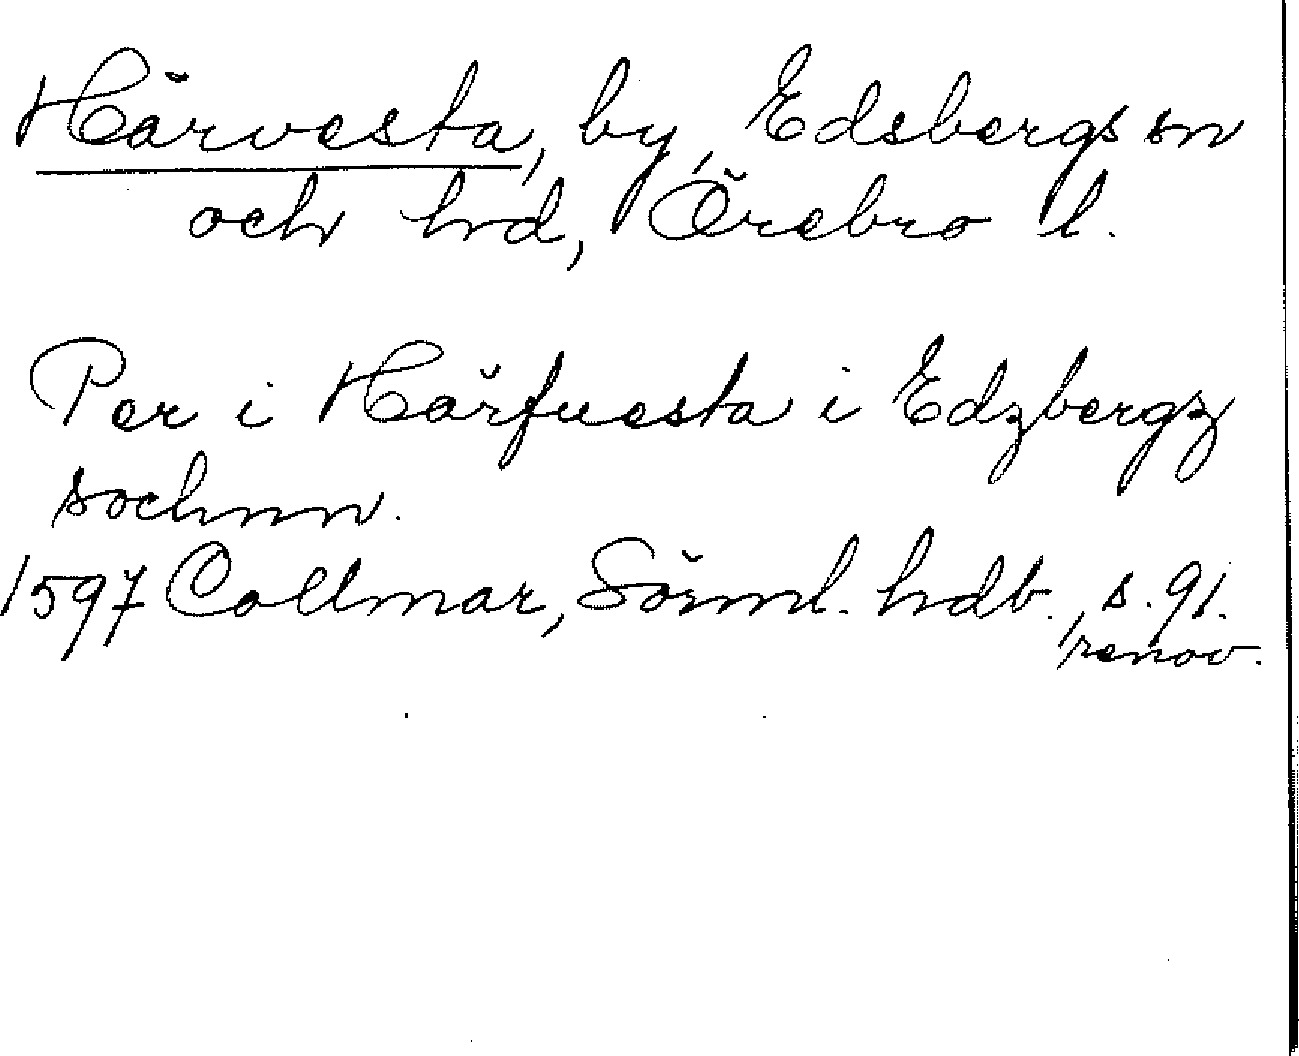 Härvesta, by, Edsbergs sn
och hrd, Örebro l.
Per i Härfuesta i Edzbergz
sochnn.
1597 Collmar, Sörml. hdb., s. 91.
renov.